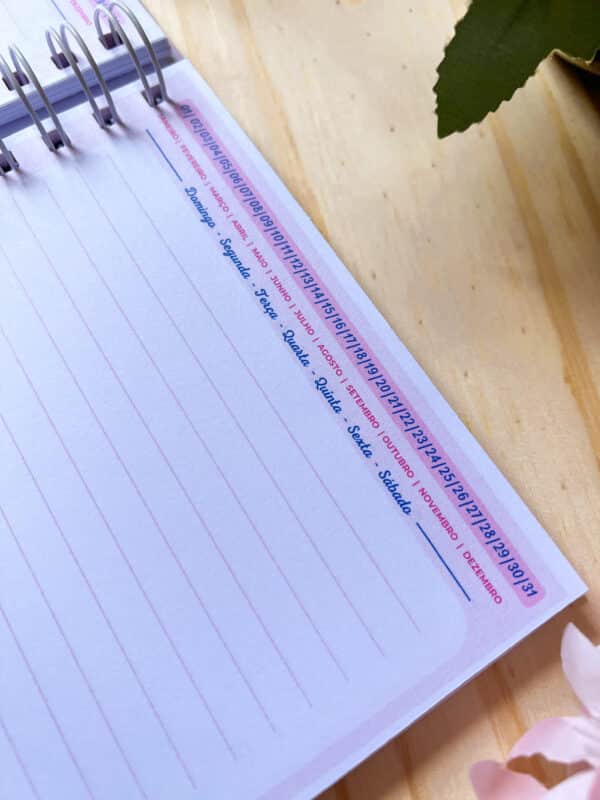 01|02|03|04|05|06|07|08|09|10|11|12|13|14|15|16|17|18|19|20|21|22|23|24|25|26|27|28|29|30|31
| FEVEREIRO | MARÇO | ABRIL | MAIO | JUNHO | JULHO | AGOSTO | SETEMBRO | OUTUBRO | NOVEMBRO | DEZEMBRO
Domingo - Segunda - Terça - Quarta - Quinta - Sexta - Sábado